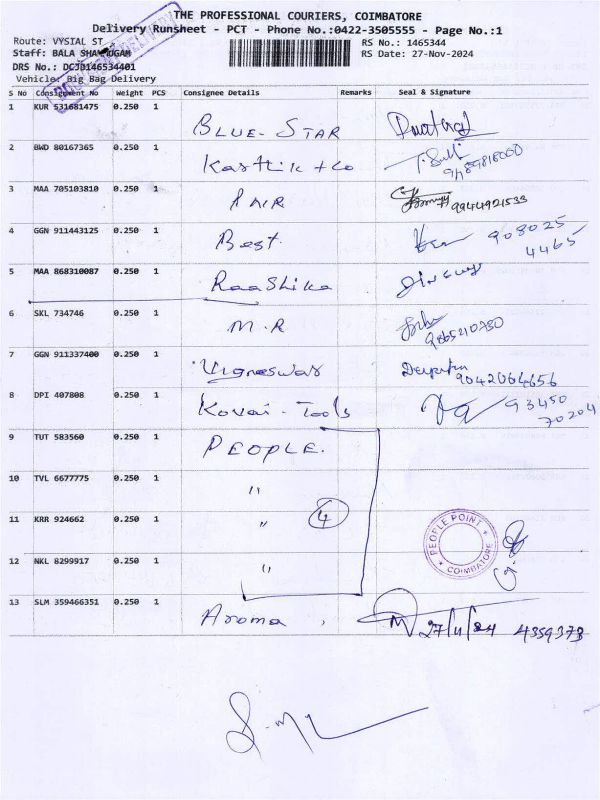 THE PROFESSIONAL COURIERS, COIMBATORE
Delivery Runsheet - PCT - Phone No.:0422-3505555 - Page No.:1
Route: VYSIAL ST
RS No.: 1465344
Staff: BALA SHANMUGAM
RS Date: 27-Nov-2024
DRS No.: DCJD146534401
Vehicle: Big Bag Delivery
S No Consignment No Weight PCS Consignee Details Remarks Seal & Signature
1 KUR 531681475 0.250 1 BLUE-STAR
2 BWD 80167365 0.250 1 Karthik + Co
3 MAA 705103810 0.250 1 9944921533
4 GGN 911443125 0.250 1 Best. 908025
4465
5 MAA 868310087 0.250 1 RaaShika
6 SKL 734746 0.250 1 M.R 9865210750
7 GGN 911337400 0.250 1 Vigneswar 9042064656
8 DPI 407808 0.250 1 Kovai-Tools 93450
70204
9 TUT 583560 0.250 1 PEOPLE.
10 TVL 6677775 0.250 1 "
11 KRR 924662 0.250 1 " 4
PEOPLE POINT
★ COIMBATORE ★
12 NKL 8299917 0.250 1 "
13 SLM 359466351 0.250 1 Aroma, 27/11/24 4359373